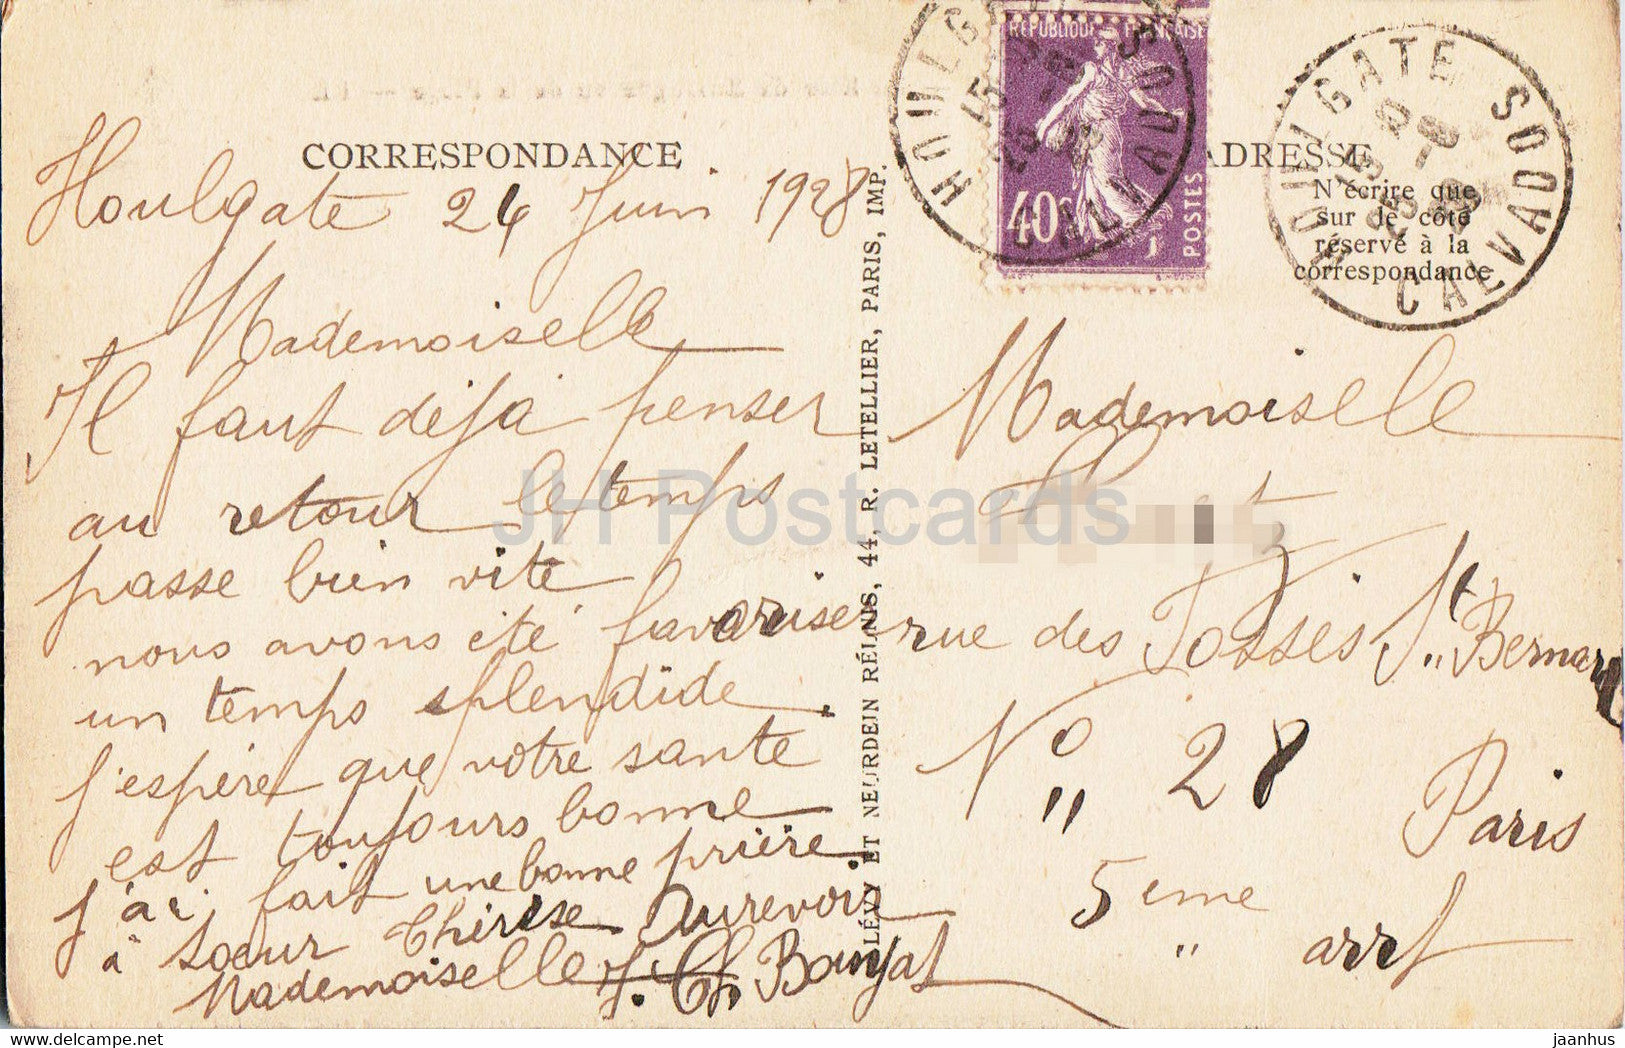 CORRESPONDANCE
Houlgate 24 Juin 1928
Mademoiselle
Il faut déjà penser
au retour le temps
passe bien vite
nous avons été favoriser
un temps splendide.
j'espère que votre santé
est toujours bonne
j'ai fait une bonne prière
à Sœur Thérèse Aurevoir
Mademoiselle J. Ch. Bouyat
LÉVY ET NEURDEIN RÉUNIS, 44, R. LETELLIER, PARIS, IMP.
HOULGATE CALVADOS
RÉPUBLIQUE FRANÇAISE
40c
POSTES
ADRESSE
N'écrire que
sur le côté
réservé à la
correspondance
HOULGATE CALVADOS
Mademoiselle
rue des Fossés St Bernard
N° 28
Paris
5 ème arrt
JH Postcards
jaanhus